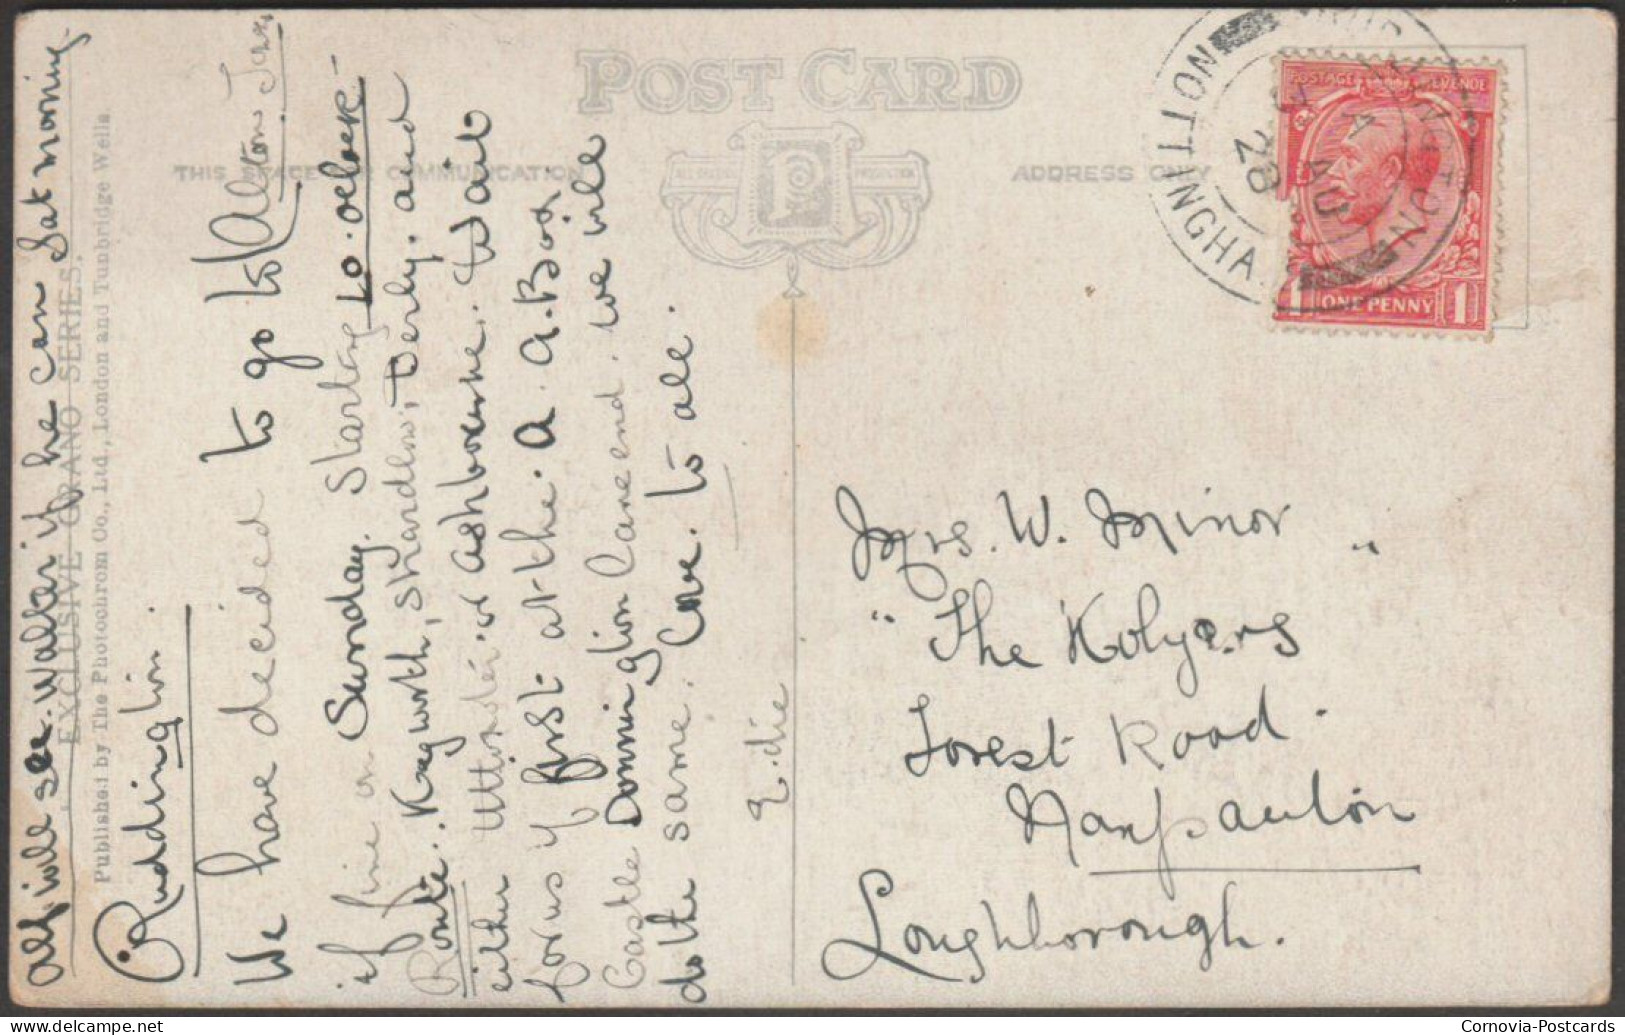 POST CARD
THIS SPACE FOR COMMUNICATION
ADDRESS ONLY
EXCLUSIVE GRANO SERIES.
Published by The Photochrom Co., Ltd., London and Tunbridge Wells.
Alf. will see. Walter if he can Sat morning.
Ruddington.
We have decided to go to Alton
if fine on Sunday. Starting 10. oclock-
Route. Kegworth, Shardlow, Derby. and
either Uttoxeter or Ashbourne. Wait
for us if first at the. A. A. Box
Castle Donnington Lane end. we will
do the same. Love. to all.
Edie
Mrs. W. Minor
"The Kolyers"
Forest Road.
Nanpantan
Loughborough.
RUDDINGTON
NOTTINGHAM
3 AU
28
POSTAGE REVENUE
1 ONE PENNY 1
Cornovia-Postcards